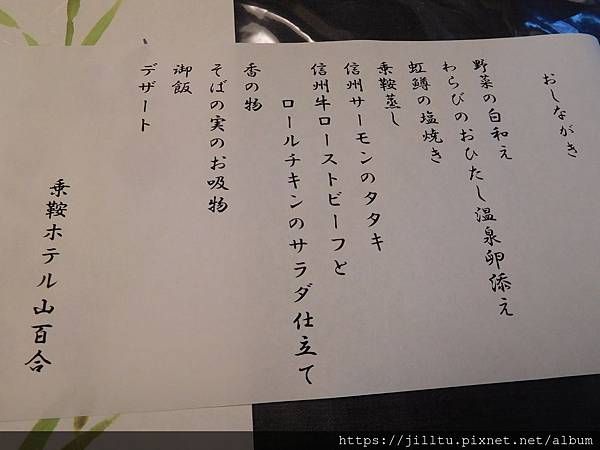 おしながき
野菜の白和え
わらびのおひたし温泉卵添え
虹鱒の塩焼き
乗鞍蒸し
信州サーモンのタタキ
信州牛ローストビーフと
ロールチキンのサラダ仕立て
香の物
そばの実のお吸物
御飯
デザート
乗鞍ホテル山百合
https://jilltu.pixnet.net/album